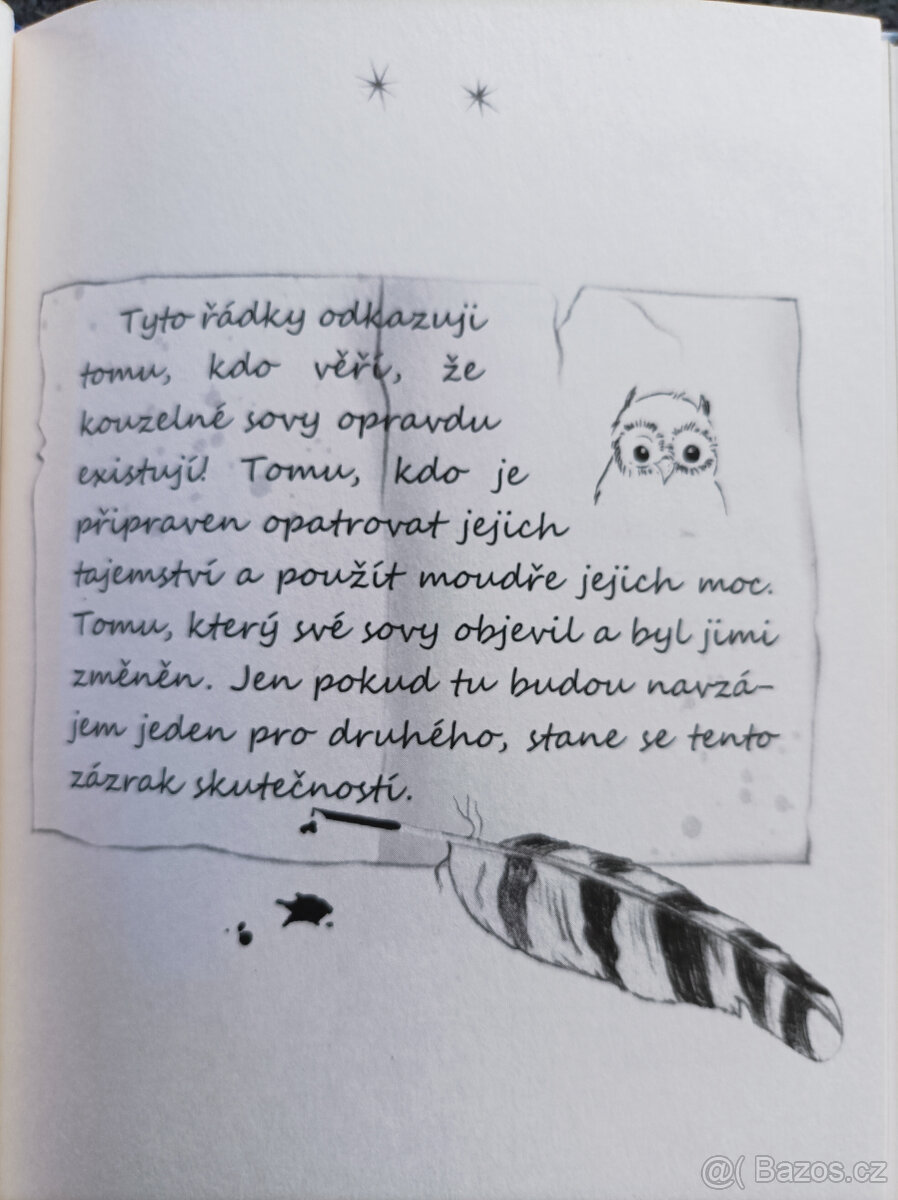 Tyto řádky odkazuji
tomu, kdo věří, že
kouzelné sovy opravdu
existují! Tomu, kdo je
připraven opatrovat jejich
tajemství a použít moudře jejich moc.
Tomu, který své sovy objevil a byl jimi
změněn. Jen pokud tu budou navzá-
jem jeden pro druhého, stane se tento
zázrak skutečností.
@( Bazos.cz